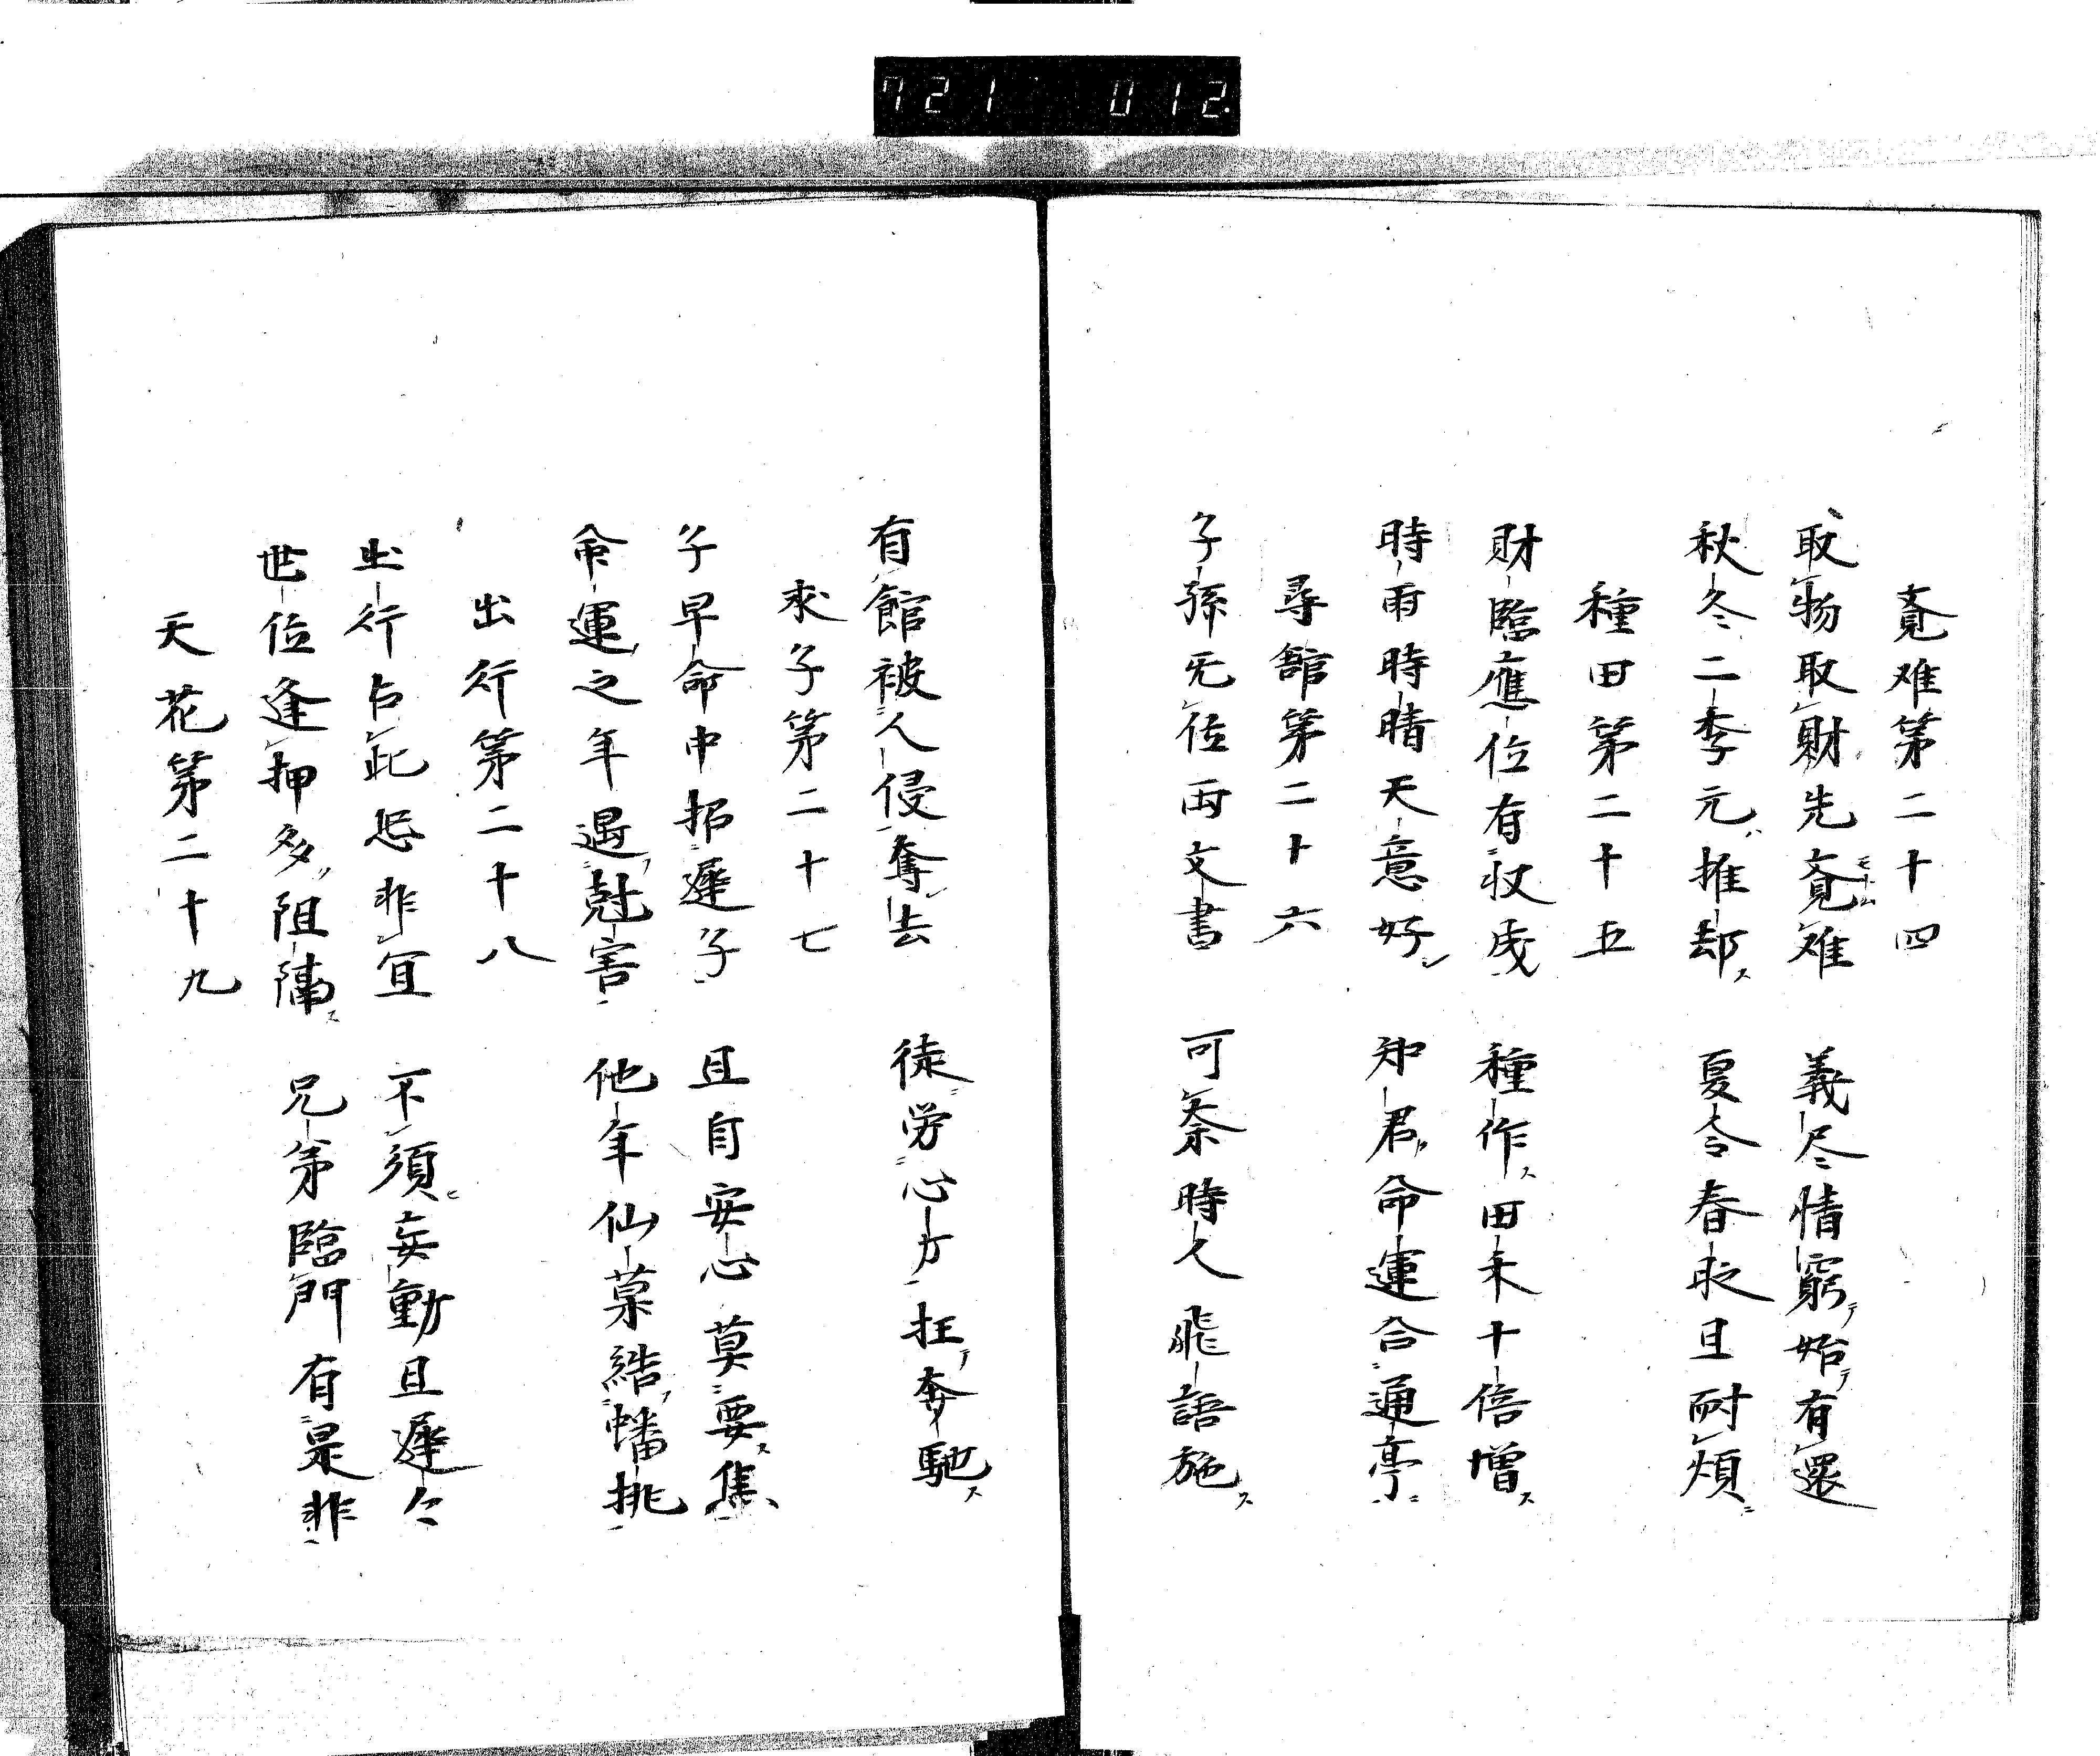 721 012
覔难第二十四
取物取財先覔难 義尽情窮始有還
秋冬二季元推却 夏令春取且耐煩
種田第二十五
財臨應位有收成 種作田禾十倍增
時雨時晴天意好 知君命運合通亭
尋舘第二十六
子孫旡位両文書 可柰時人飛語施
有館被人侵奪去 徒労心力枉奔馳
求子第二十七
子早命中招遲子 且自安心莫要焦
命運之年遇尅害 他年仙菓結蟠挑
出行第二十八
出行占此恐非宜 不須妄動且遲々
世位逢押多阻陣 兄弟臨門有是非
天花第二十九